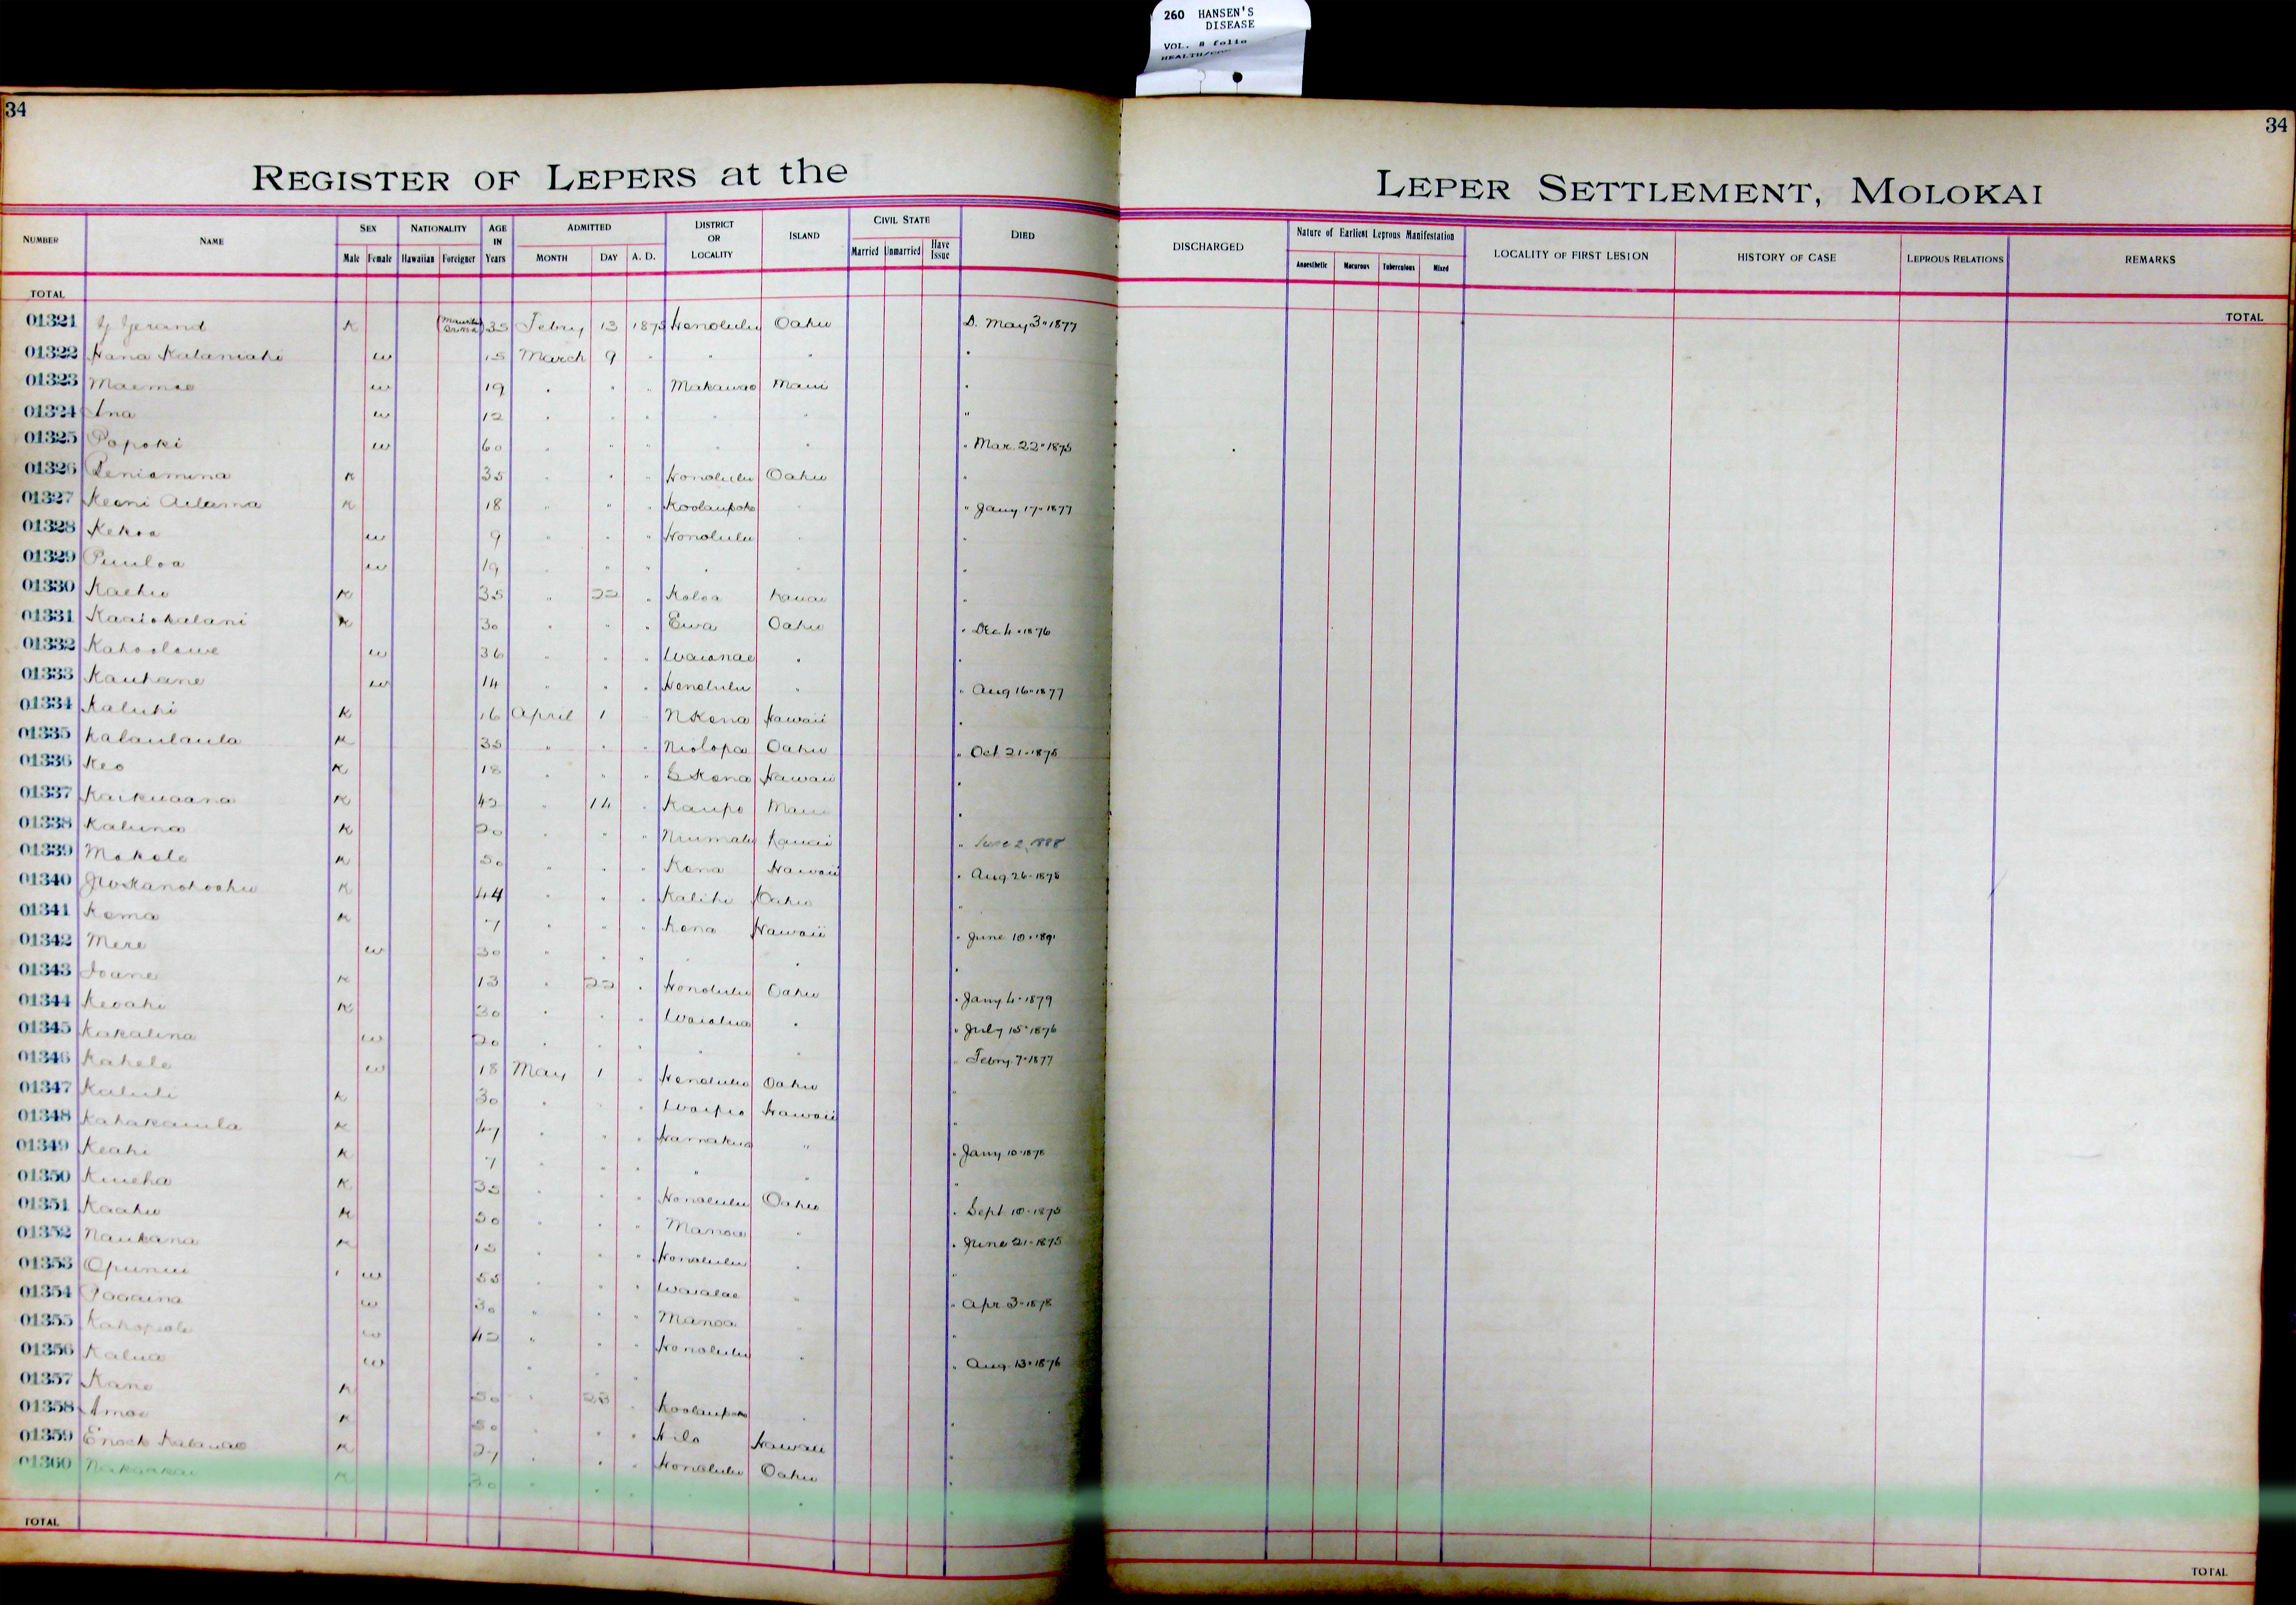 260 HANSEN'S
DISEASE
VOL. 8 folio
34
34
REGISTER OF LEPERS at the
LEPER SETTLEMENT, MOLOKAI
NUMBER NAME SEX NATIONALITY AGE IN Years ADMITTED DISTRICT OR LOCALITY ISLAND CIVIL STATE DIED
Male Female Hawaiian Foreigner MONTH DAY A. D. Married Unmarried Have Issue
DISCHARGED Nature of Earliest Leprous Manifestation LOCALITY OF FIRST LESION HISTORY OF CASE LEPROUS RELATIONS REMARKS
Anaesthetic Macurous Tuberculous Mixed
TOTAL
TOTAL
01321 Gerand K 35 Febry 13 1875 Honolulu Oahu D. May 3" 1877
01322 Hana Kalaniahi w 15 March 9 " " " "
01323 Maemae w 19 " " " Makawao Maui "
01324 Ina w 12 " " " " " "
01325 Popoki w 60 " " " " " " Mar. 22" 1875
01326 Peniamina K 35 " " " Honolulu Oahu "
01327 Keoni Adama K 18 " " " Koolaupoko " " Jany 17" 1877
01328 Kekoa w 9 " " " Honolulu " "
01329 Puuloa w 19 " " " " " "
01330 Kaehu K 35 " 22 " Koloa Kauai "
01331 Kaaiokalani K 30 " " " Ewa Oahu " Dec 4" 1876
01332 Kahoolawe w 36 " " " Waianae " "
01333 Kauhane w 14 " " " Honolulu " " Aug 16" 1877
01334 Kaluhi K 16 April 1 " N Kona Hawaii "
01335 Kalaulaula K 35 " " " Niolopa Oahu " Oct 21" 1875
01336 Keo K 18 " " " S Kona Hawaii "
01337 Kaikuaana K 42 " 14 " Kaupo Maui "
01338 Kaluna K 20 " " " Niumalu Kauai " June 2, 1888
01339 Makole K 50 " " " Kona Hawaii " Aug 26" 1878
01340 K 44 " " " Kalihi Oahu "
01341 Koma K 7 " " " Kona Hawaii " June 10" 1891
01342 Mere w 30 " " " " " "
01343 Ioane K 13 " 22 " Honolulu Oahu " Jany 4" 1879
01344 Keoahi K 30 " " " Waialua " " July 15" 1876
01345 Kakalina w 20 " " " " " " Febry 7" 1877
01346 Kahele w 18 May 1 " Honolulu Oahu "
01347 Kaluli K 30 " " " Waipio Hawaii "
01348 Kahakauila K 47 " " " Hamakua " " Jany 10" 1878
01349 Keahi K 7 " " " " " "
01350 Kuieha K 35 " " " Honolulu Oahu " Sept 10" 1875
01351 Kaahu K 50 " " " Manoa " " June 21" 1875
01352 Naukana K 15 " " " Honolulu " "
01353 Opunui w 55 " " " Waialae " " Apr 3" 1878
01354 Paaaina w 30 " " " Manoa " "
01355 w 42 " " " Honolulu " " Aug. 13" 1876
01356 Kalua w " " "
01357 Kane K 50 " 28 " Koolaupoko " "
01358 Amoe K 50 " " " Hilo Hawaii "
01359 Enoch Kalauao K 27 " " " Honolulu Oahu "
01360 K 30 " " " " "
TOTAL
TOTAL